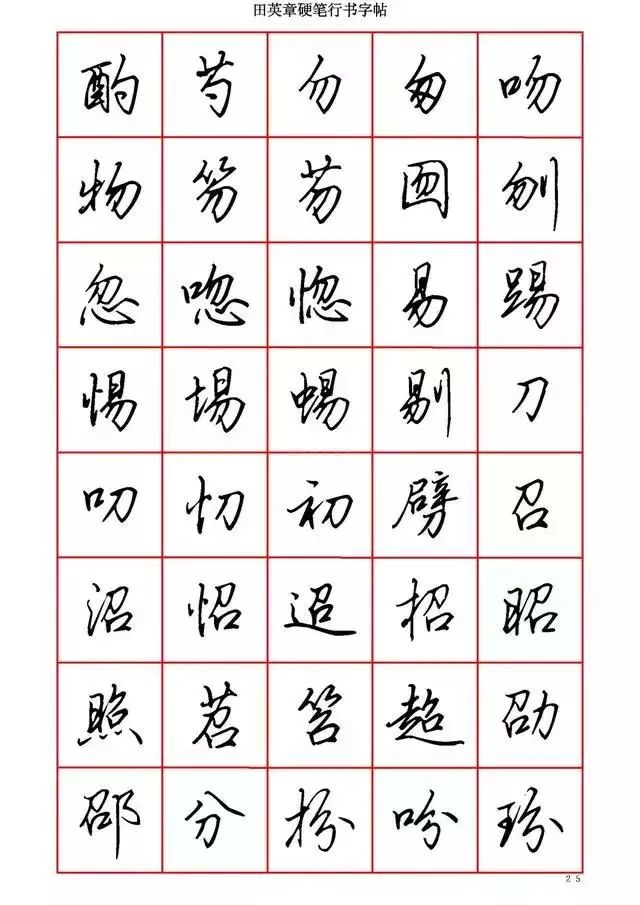 田英章硬笔行书字帖
酌芍勿匆吻
物笏芴囫刎
忽唿惚易踢
惕埸蜴剔刀
叨忉初劈召
沼怊迢招昭
照苕笤超劭
邵分扮吩玢
25